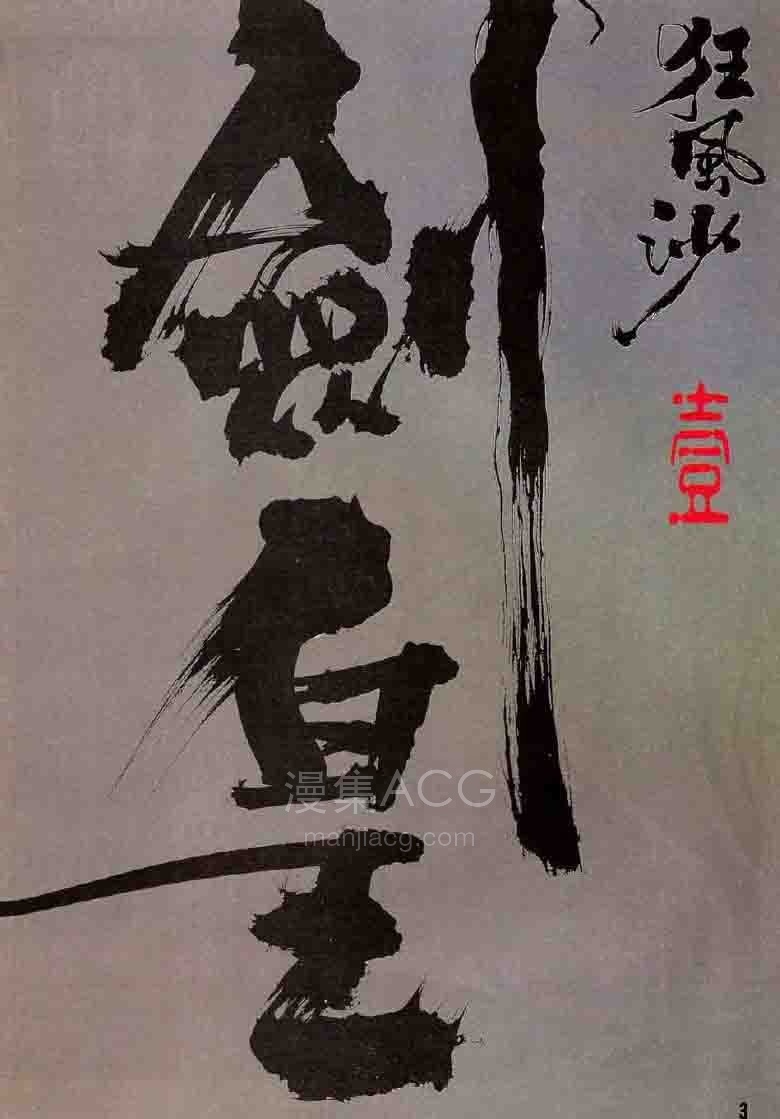 狂風沙
壹
劍皇
漫集ACG
manjiacg.com
3